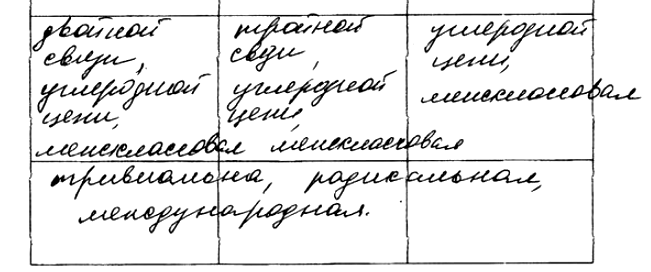 двойной
связи,
углеродной
цепи,
межклассовая
тройной
связи,
углеродной
цепи,
межклассовая
углеродной
цепи,
межклассовая
тривиальна, радикальная,
международная.